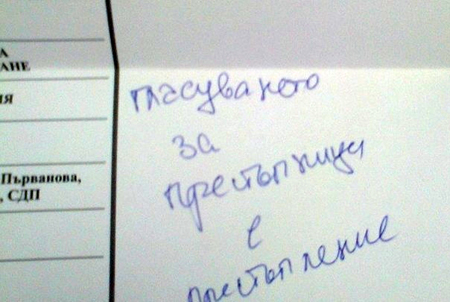 А
АНЕ
ИЯ
Първанова,
, СДП
гласуването
за
престъпници
е
престъпление